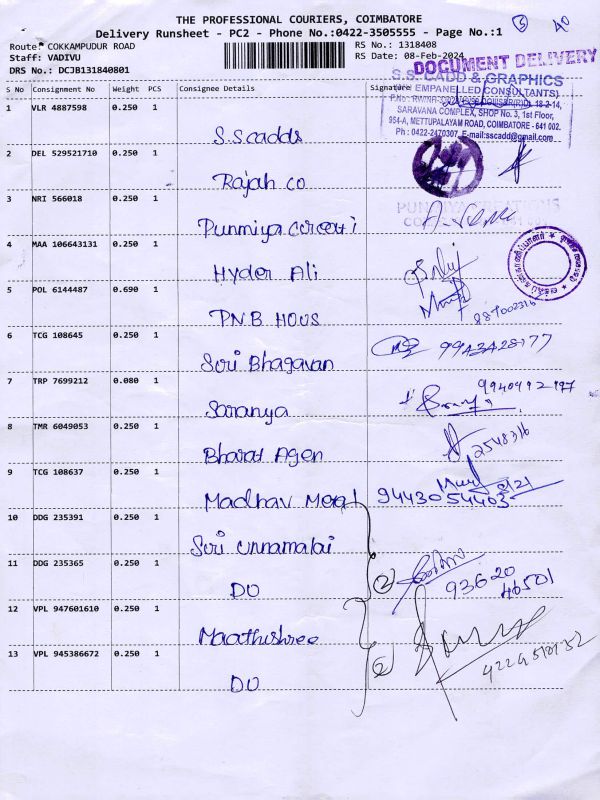 THE PROFESSIONAL COURIERS, COIMBATORE
Delivery Runsheet - PC2 - Phone No.:0422-3505555 - Page No.:1
5 40
Route: COKKAMPUDUR ROAD
RS No.: 1318408
Staff: VADIVU
RS Date: 08-Feb-2024
DRS No.: DCJB131840801
DOCUMENT DELIVERY
S No Consignment No Weight PCS Consignee Details Signature
S.S. CADD & GRAPHICS
(EMPANELLED CONSULTANTS)
18-2-14,
SARAVANA COMPLEX, SHOP No. 3, 1st Floor,
954-A, METTUPALAYAM ROAD, COIMBATORE - 641 002.
Ph : 0422-2470307, E-mail:sscadd@gmail.com
1 VLR 4887598 0.250 1 S.S.cadds
2 DEL 529521710 0.250 1 Rajah co
PUNMIYA CREATIONS
3 NRI 566018 0.250 1 Punmiya
4 MAA 106643131 0.250 1 Hyder Ali
5 POL 6144487 0.690 1 P.N.B. HOUS
6 TCG 108645 0.250 1 Sori Bhagavan 9943428177
7 TRP 7699212 0.080 1 Saranya
8 TMR 6049053 0.250 1 Bharat Agen 2548316
9 TCG 108637 0.250 1 Madhav Meral 9443054403
10 DDG 235391 0.250 1 Sori Unnamalai
11 DDG 235365 0.250 1 DO 2 93620
46501
12 VPL 947601610 0.250 1 Maathushree
13 VPL 945386672 0.250 1 DO 2